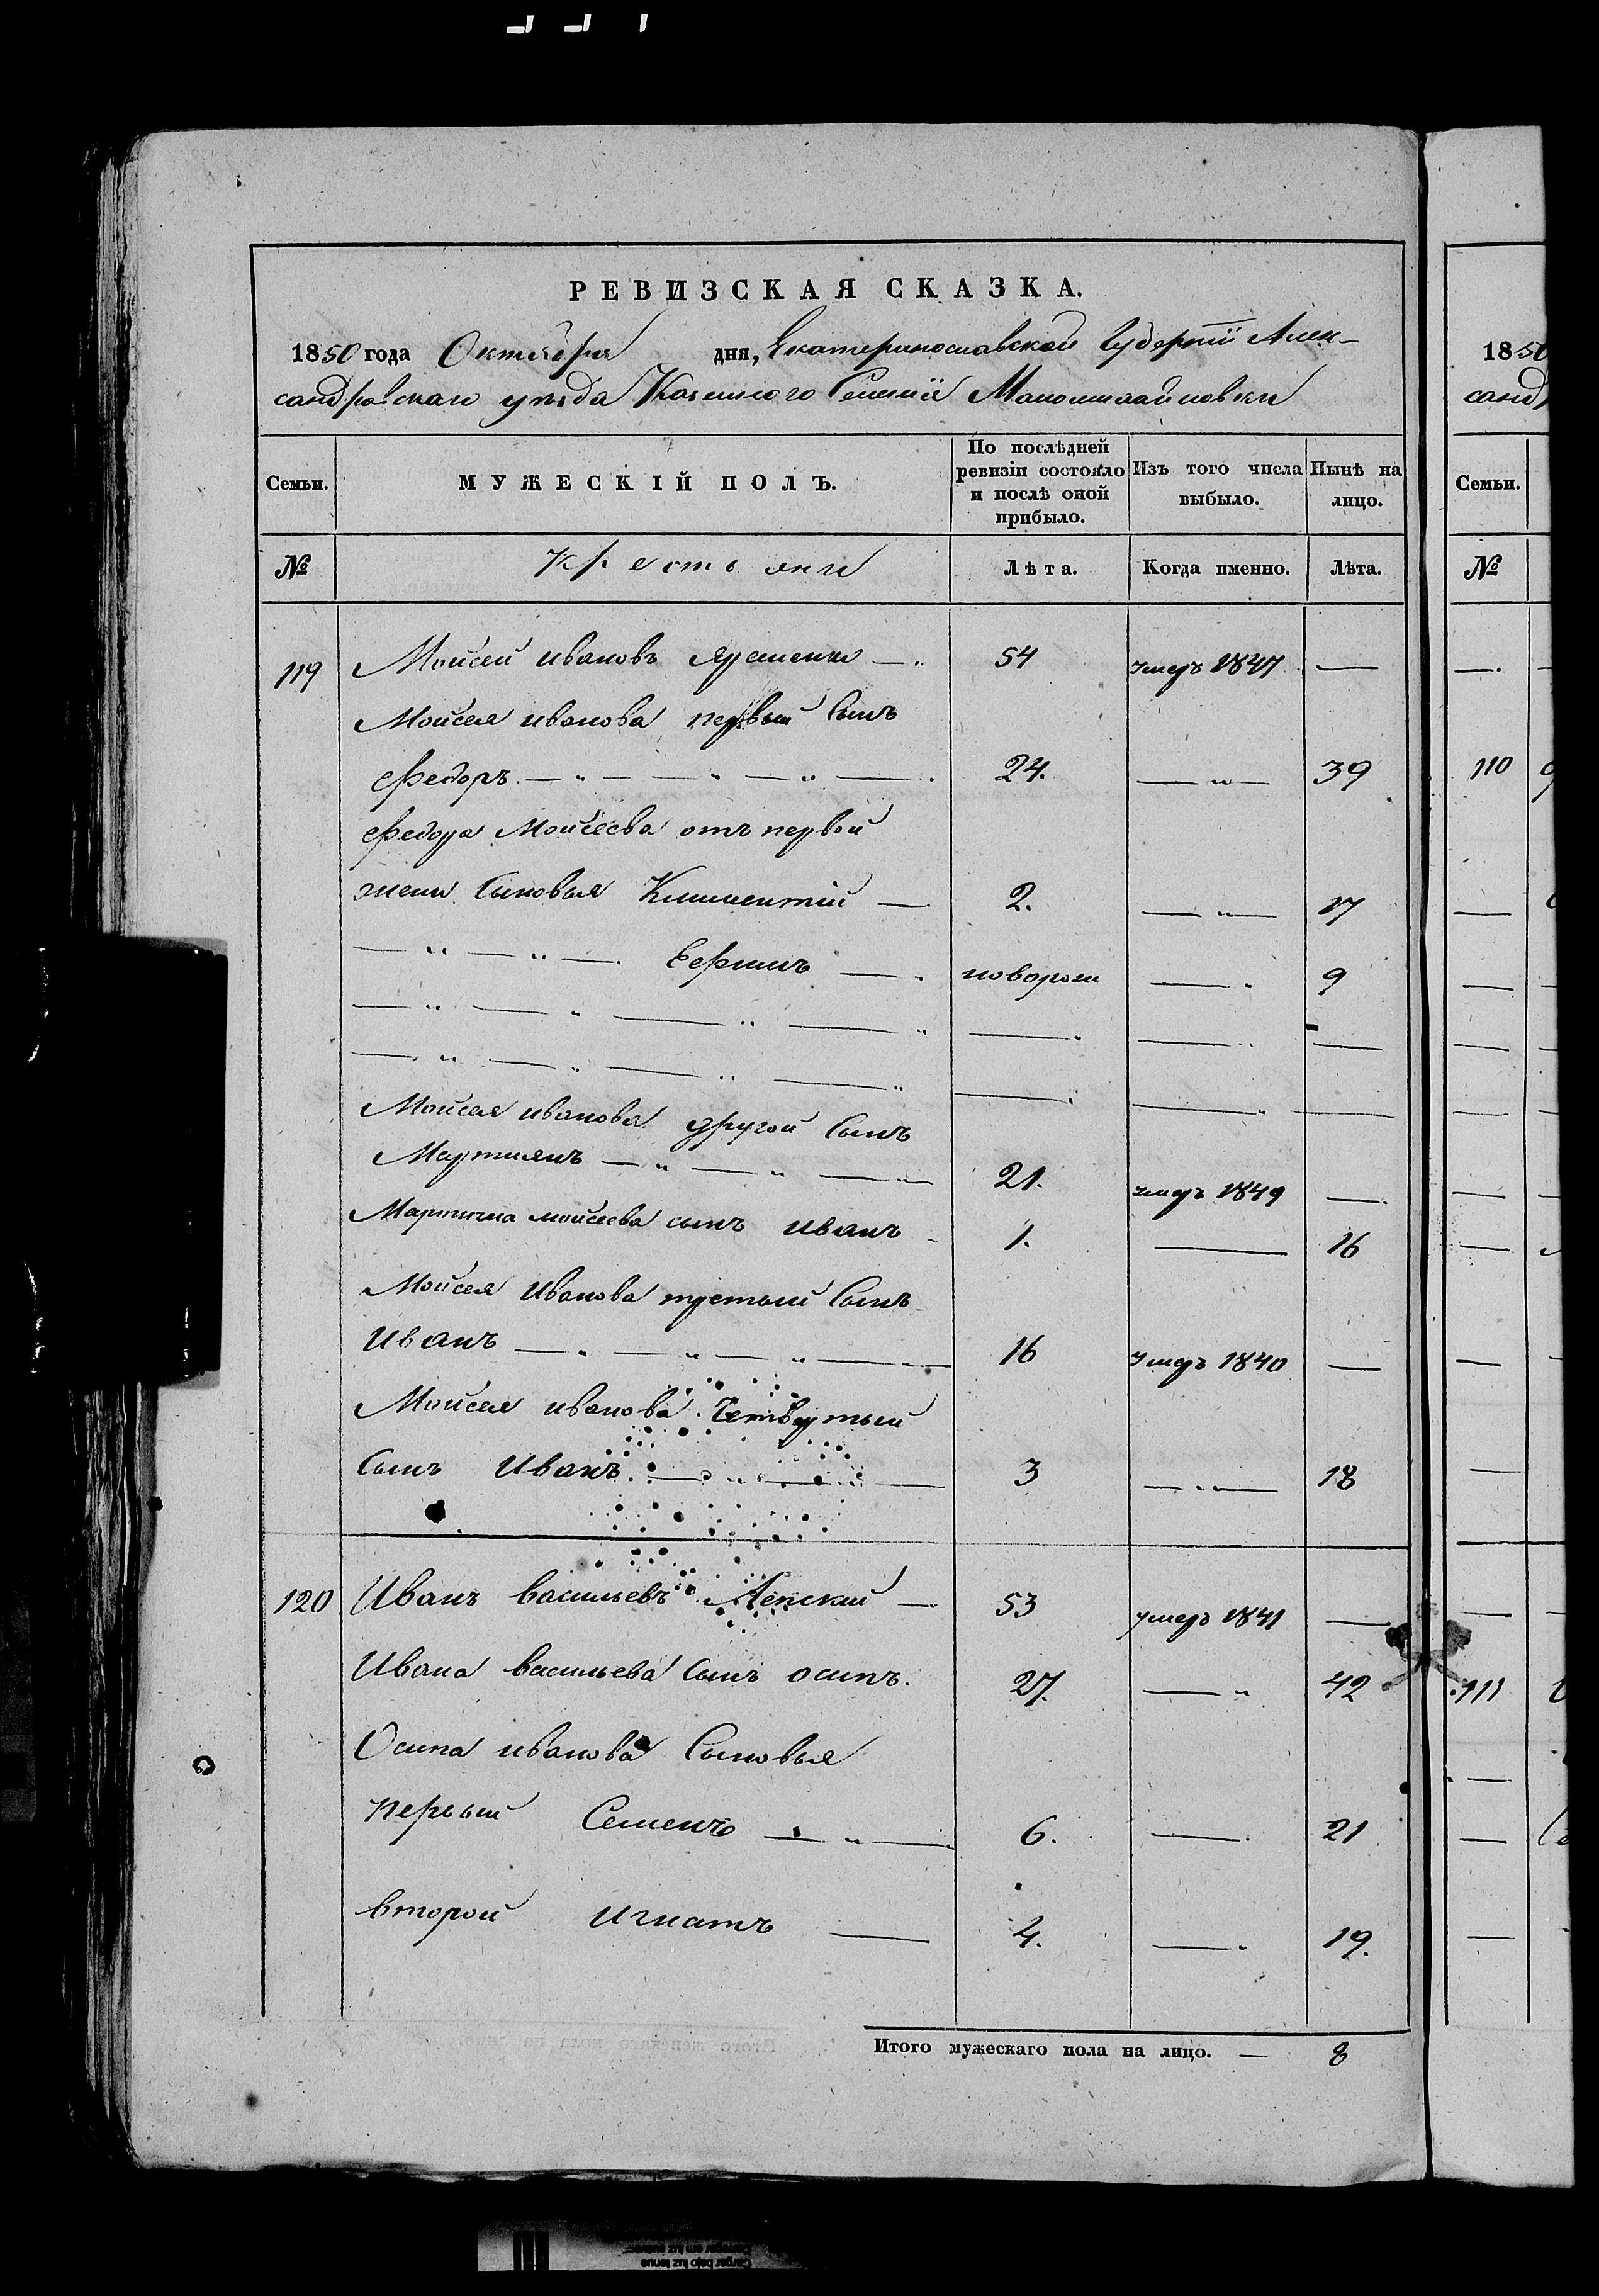 РЕВИЗСКАЯ СКАЗКА.
1850 года Октября дня, Екатеринославской Губернїи Алек-
сандровскаго уезда Казенного Селенїя Маломихайловки
Семьи. МУЖЕСКІЙ ПОЛЪ. По послѣдней ревизіи состояло и послѣ оной прибыло. Изъ того числа выбыло. Нынѣ на лицо.
№ Крестьяне Лѣта. Когда именно. Лѣта.
119 Мойсей Ивановъ 54 умеръ 1847 —
Мойсея Иванова первый Сынъ
Федоръ 24. — 39
Федора Мойсеева отъ первой
жены Сыновья Климентїй — 2. — 17
Ефимъ — новорож — 9
Мойсея Иванова другой Сынъ
Мартинъ 21. умеръ 1849 —
Мартина Мойсеева сынъ Иванъ 1. — 16
Мойсея Иванова третьий Сынъ
Иванъ 16 Умеръ 1840 —
Мойсея Иванова Четвертый
Сынъ Иванъ 3 — 18
120 Иванъ Васильевъ Лепский — 53 умеръ 1841 —
Ивана Васильева Сынъ Осипъ. 27. — 42
Осипа Иванова Сыновья
Первый Семенъ 6. — 21
Второй Игнатъ — 4. — 19.
Итого мужескаго пола на лицо. — 8
1850
санд
Семьи.
№
110
111